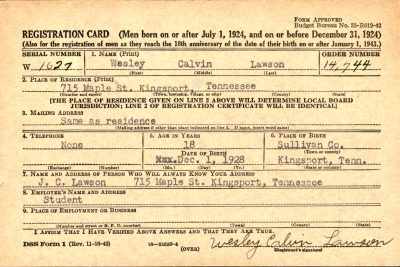 FORM APPROVED
Budget Bureau No. 33-R012-42
REGISTRATION CARD (Men born on or after July 1, 1924, and on or before December 31, 1924)
(Also for the registration of men as they reach the 18th anniversary of the date of their birth on or after January 1, 1943.)
SERIAL NUMBER 1. NAME (Print) ORDER NUMBER
W 1627 Wesley Calvin Lawson 14,744
(First) (Middle) (Last)
2. PLACE OF RESIDENCE (Print)
715 Maple St. Kingsport, Tennessee
(Number and street) (Town, township, village, or city) (County) (State)
[THE PLACE OF RESIDENCE GIVEN ON LINE 2 ABOVE WILL DETERMINE LOCAL BOARD
JURISDICTION; LINE 2 OF REGISTRATION CERTIFICATE WILL BE IDENTICAL]
3. MAILING ADDRESS
Same as residence
[Mailing address if other than place indicated on line 2. If same, insert word same]
4. TELEPHONE 5. AGE IN YEARS 6. PLACE OF BIRTH
None 18 Sullivan Co.
DATE OF BIRTH (Town or county)
Dec. 1, 1928 Kingsport, Tenn.
(Exchange) (Number) (Mo.) (Day) (Yr.) (State or country)
7. NAME AND ADDRESS OF PERSON WHO WILL ALWAYS KNOW YOUR ADDRESS
J. C. Lawson 715 Maple St. Kingsport, Tennessee
8. EMPLOYER'S NAME AND ADDRESS
Student
9. PLACE OF EMPLOYMENT OR BUSINESS
(Number and street or R. F. D. number) (Town) (County) (State)
I AFFIRM THAT I HAVE VERIFIED ABOVE ANSWERS AND THAT THEY ARE TRUE.
DSS Form 1 (Rev. 11-16-42) (OVER) Wesley Calvin Lawson
(Registrant's signature)